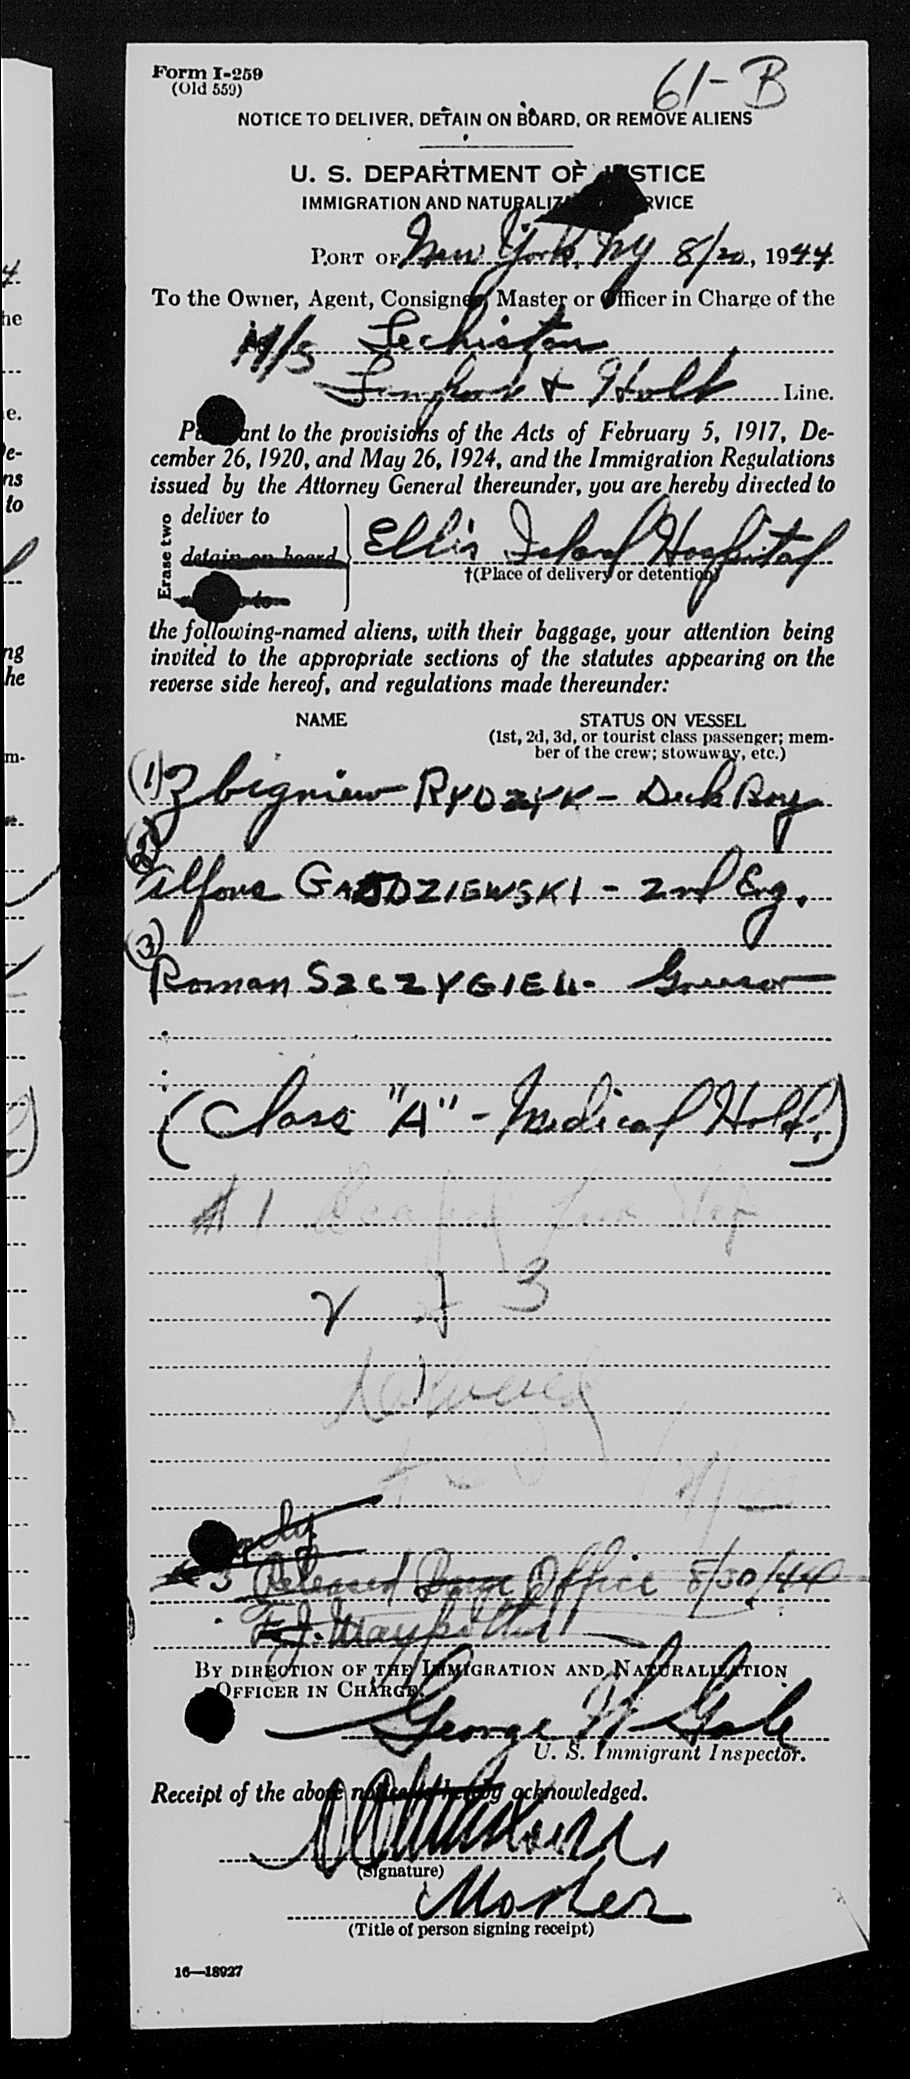 Form I-259
(Old 559)
61-B
NOTICE TO DELIVER, DETAIN ON BOARD, OR REMOVE ALIENS
U. S. DEPARTMENT OF JUSTICE
IMMIGRATION AND NATURALIZATION SERVICE
PORT OF New York, NY 8/20, 1944
To the Owner, Agent, Consignee, Master or Officer in Charge of the
M/S Lechistan
Lamport & Holt Line.
Pursuant to the provisions of the Acts of February 5, 1917, De-
cember 26, 1920, and May 26, 1924, and the Immigration Regulations
issued by the Attorney General thereunder, you are hereby directed to
Erase two
deliver to
detain on board
Ellis Island Hospital
†(Place of delivery or detention)
the following-named aliens, with their baggage, your attention being
invited to the appropriate sections of the statutes appearing on the
reverse side hereof, and regulations made thereunder:
NAME STATUS ON VESSEL
(1st, 2d, 3d, or tourist class passenger; mem-
ber of the crew; stowaway, etc.)
(1) Zbigniew RYDZYK - Deck Boy
(2) Alfons - 2nd Eng.
(3) Roman SZCZYGIEL - Greaser
(Class "A" - Medical Hold.)
# 1
2 + 3
3 Released Barge Office 8/30/44
BY DIRECTION OF THE IMMIGRATION AND NATURALIZATION
OFFICER IN CHARGE.
George W Gale
U. S. Immigrant Inspector.
Receipt of the above notice is hereby acknowledged.
(Signature)
Master
(Title of person signing receipt)
16—18927